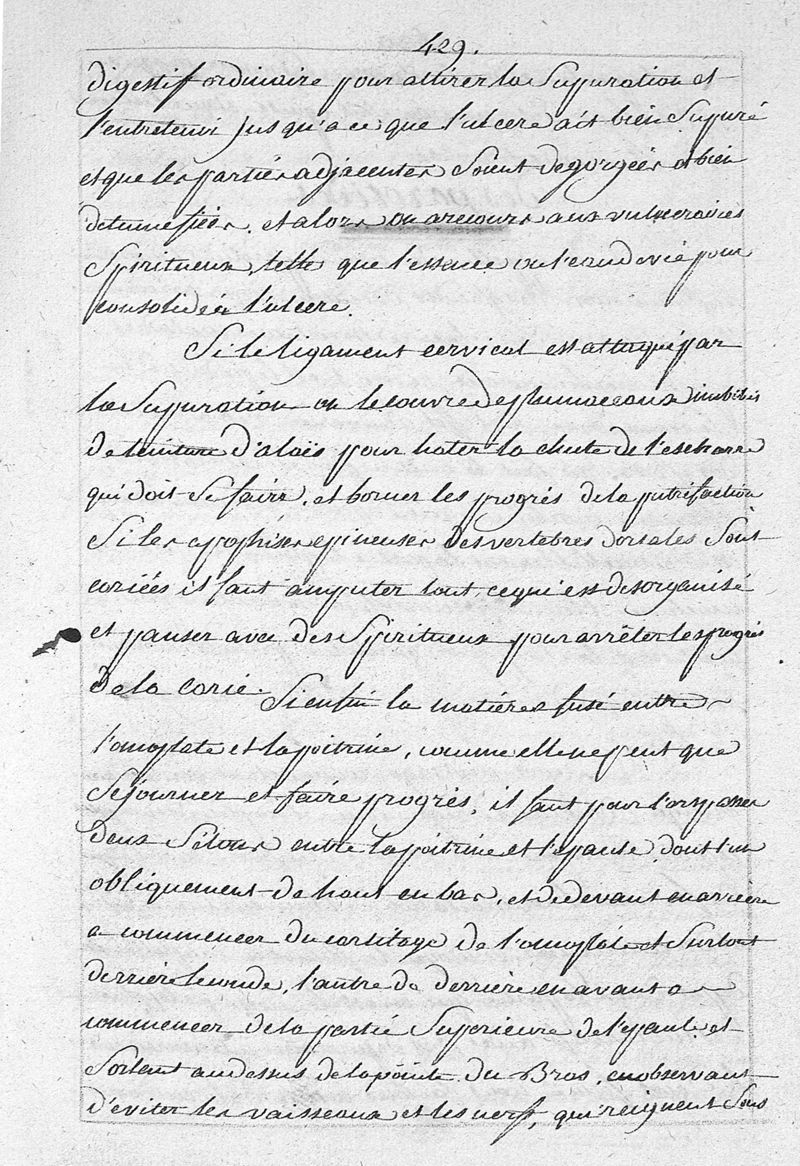 429.
digestif ordinaire pour attirer la Supuration et
l'entretenir jusqu'a ce que l'ulcere ait bien Supuré
et que les parties adjacentes Soient degorgées et bien
detumefiées, et alors on a recours aux vulneraires
Spiritueux telle que l'essence ou l'eau de vie pour
consolider l'ulcere.
Si le ligament cervical est attaqué par
la Supuration on le couvre de plumaceaux imbibés
de teinture d'aloës pour hater la chute de l'escharre
qui doit Se faire, et borner les progrès de la putrefaction
Si les apophises epineuses des vertebres dorsales Sont
cariées il faut amputer tout ce qui est desorganisé
et panser avec des Spiritueux pour arrêter les progrès
de la carie. Si enfin la matiere a fusé entre
l'omoplate et la poitrine, comme elle ne peut que
Sejourner et faire progrès, il faut pour lors passer
deux Sétons entre la poitrine et l'epaule dont l'un
obliquement de haut en bas, et de devant en arriere
a commencer du cartilage de l'omoplate et Sortant
derriere le coude, l'autre de derriere en avant a
commencer de la partie Superieure de l'epaule et
Sortant au dessus de la pointe du Bras, en observant
d'eviter les vaisseaux et les nerfs, qui reignent Sous